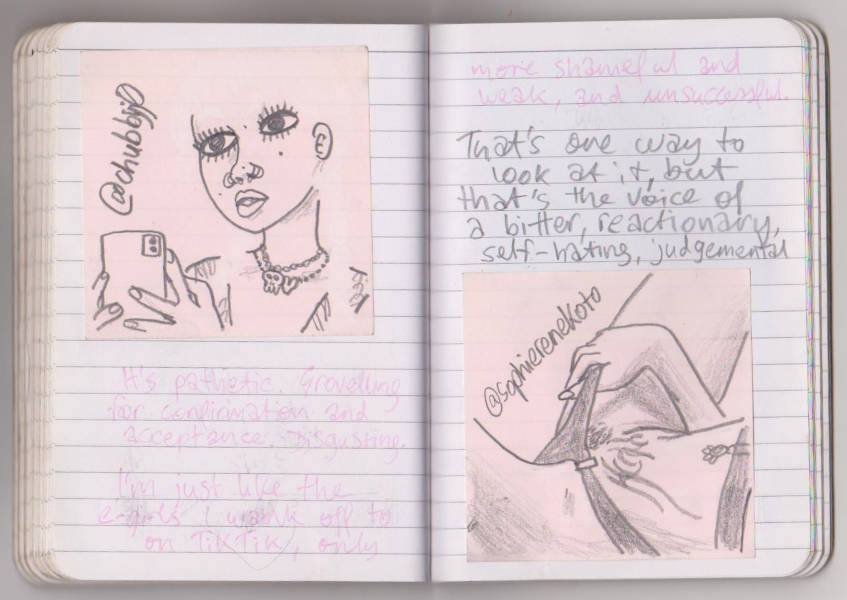 @chubbyj0
It's pathetic. Grovelling
for confirmation and
acceptance. Disgusting.
I'm just like the
e-girls I wank off to
on TikTik, only
more shameful and
weak, and unsuccessful.
That's one way to
look at it, but
that's the voice of
a bitter, reactionary,
self-hating, judgemental
@sophierenekoto